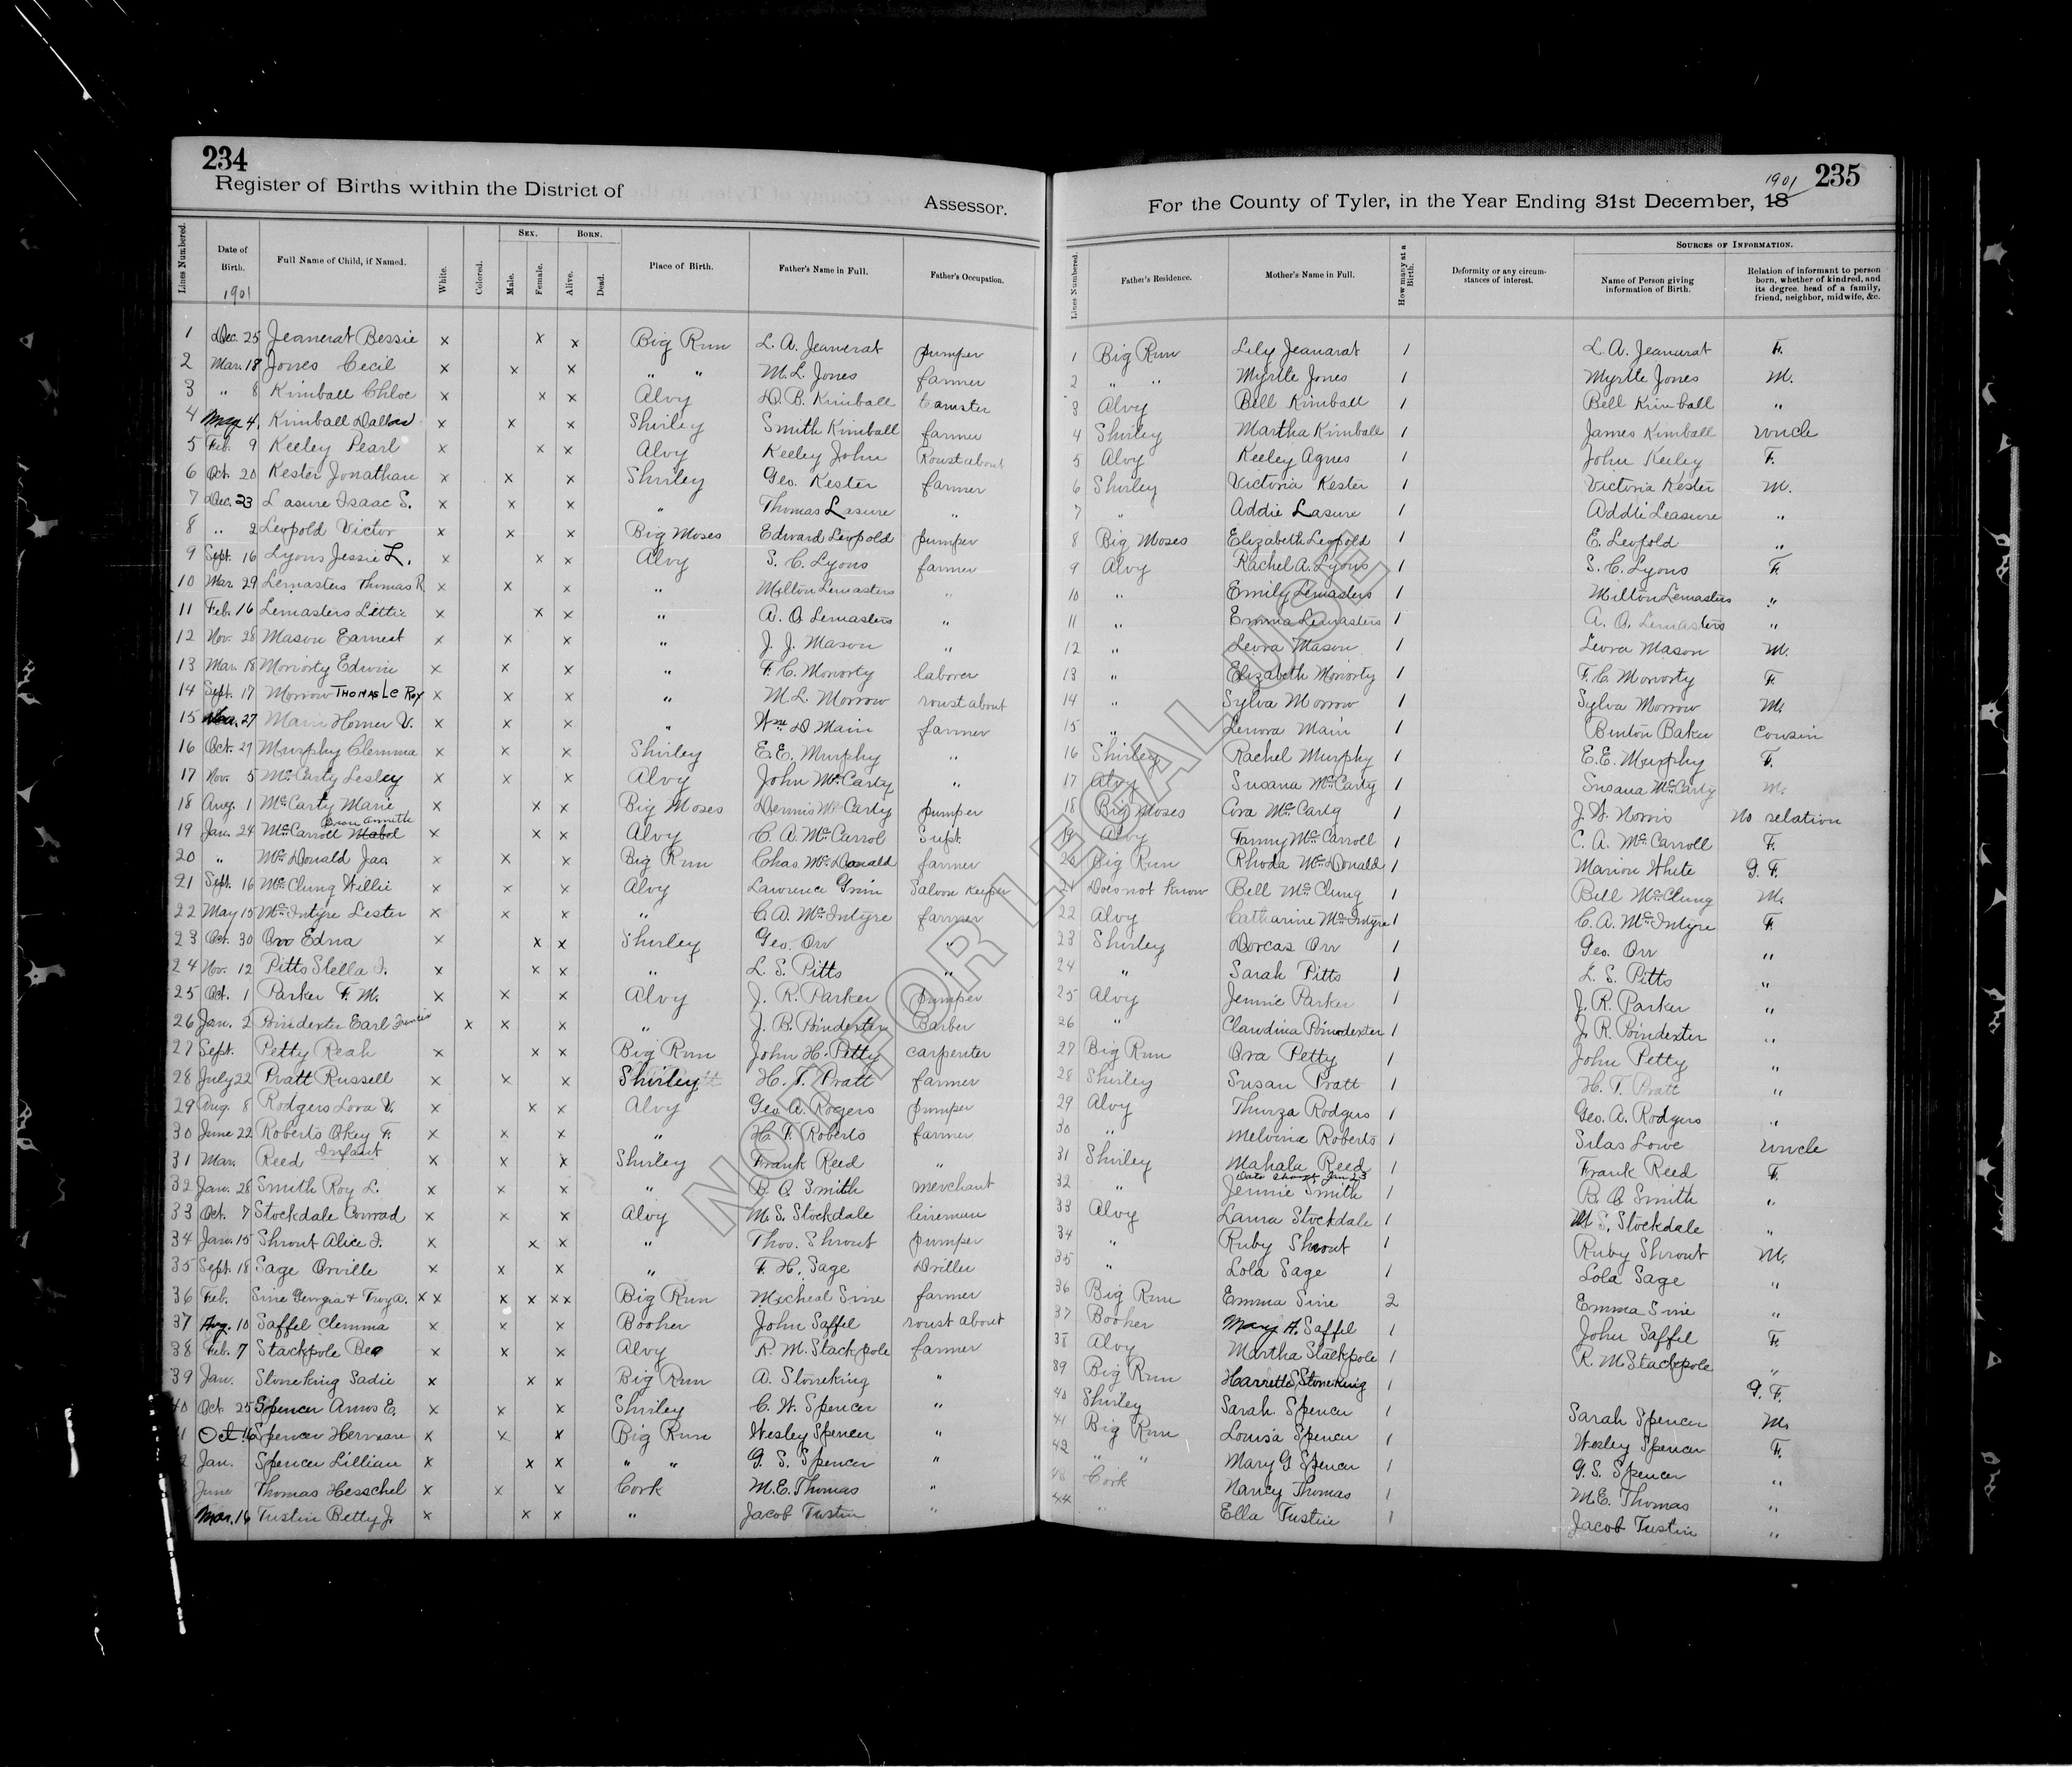 234
Register of Births within the District of
Assessor.
Lines Numbered.
Date of Birth.
1901
Full Name of Child, if Named.
White.
Colored.
SEX.
Male.
Female.
BORN.
Alive.
Dead.
Place of Birth.
Father's Name in Full.
Father's Occupation.
1 Dec. 25 Jeanerat Bessie x x x Big Run L. A. Jeanerat pumper
2 Mar. 18 Jones Cecil x x x " " M. L. Jones farmer
3 " 8 Kimball Chloe x x x Alvy D. B. Kimball teamster
4 4. Kimball Dallas x x x Shirley Smith Kimball farmer
5 Feb. 9 Keeley Pearl x x x Alvy Keeley John Roustabout
6 Oct. 20 Kester Jonathan x x x Shirley Geo. Kester farmer
7 Dec. 23 Lasure Isaac S. x x x " Thomas Lasure "
8 " 2 Leopold Victor x x x Big Moses Edward Leopold pumper
9 Sept. 16 Lyons Jessie L. x x x Alvy S. C. Lyons farmer
10 Mar. 29 Lemasters Thomas R x x x " Milton Lemasters "
11 Feb. 16 Lemasters Lettie x x x " A. O. Lemasters "
12 Nov. 28 Mason Earnest x x x " J. J. Mason "
13 Mar. 18 Moriorty Edwin x x x " F. C. Moriorty laborer
14 Sept. 17 Morrow THOMAS Le Roy x x x " M. L. Morrow roust about
15 27 Main Homer V. x x x " Wm D Main farmer
16 Oct. 27 Murphy Clemma x x x Shirley E. E. Murphy "
17 Nov. 5 McCarty Lesley x x x Alvy John McCarty "
18 Aug. 1 McCarty Marie x x x Big Moses Dennis McCarty pumper
19 Jan. 24 McCarroll Mabel x x x Alvy C. A. McCarrol Supt.
20 " McDonald Jas x x x Big Run Chas. McDonald farmer
21 Sept. 16 McClung Willie x x x Alvy Lawrence Grim Saloon Keeper
22 May 15 McIntyre Lester x x x " C. A. McIntyre farmer
23 Oct. 30 Orr Edna x x x Shirley Geo. Orr "
24 Nov. 12 Pitts Stella I. x x x " L. S. Pitts "
25 Oct. 1 Parker F. M. x x x Alvy J. R. Parker pumper
26 Jan. 2 Poindexter Earl Francis x x x " J. B. Poindexter Barber
27 Sept. Petty Reah x x x Big Run John H. Petty carpenter
28 July 22 Pratt Russell x x x Shirley H. T. Pratt farmer
29 Aug. 8 Rodgers Lora V. x x x Alvy Geo. A. Rogers pumper
30 June 22 Roberts Okey F. x x x " H. F. Roberts farmer
31 Mar. Reed Infant x x x Shirley Frank Reed "
32 Jan. 28 Smith Roy L. x x x " B. O. Smith merchant
33 Oct. 7 Stockdale Conrad x x x Alvy M. S. Stockdale lineman
34 Jan. 15 Shrout Alice I. x x x " Thos. Shrout pumper
35 Sept. 18 Sage Orville x x x " F. H. Sage Driller
36 Feb. Sine Georgia & Troy A. x x x x x x Big Run Micheal Sine farmer
37 Aug. 10 Saffel Clemma x x x Booher John Saffel roust about
38 Feb. 7 Stackpole Bea x x x Alvy R. M. Stackpole farmer
39 Jan. Stoneking Sadie x x x Big Run A. Stoneking "
40 Oct. 25 Spencer Amos E. x x x Shirley C. W. Spencer "
1 Oct 16 Spencer Herman x x x Big Run Wesley Spencer "
2 Jan. Spencer Lillian x x x " " G. S. Spencer "
June Thomas Hesschel x x x Cork M. E. Thomas "
Mar. 16 Tustin Betty J. x x x " Jacob Tustin "
235
For the County of Tyler, in the Year Ending 31st December, 18 1901
Lines Numbered.
Father's Residence.
Mother's Name in Full.
How many at a Birth.
Deformity or any circumstances of interest.
SOURCES OF INFORMATION.
Name of Person giving information of Birth.
Relation of informant to person born, whether of kindred, and its degree, head of a family, friend, neighbor, midwife, &c.
1 Big Run Lily Jeanarat 1 L. A. Jeanarat F.
2 " " Myrtle Jones 1 Myrtle Jones M.
3 Alvy Bell Kimball 1 Bell Kimball "
4 Shirley Martha Kimball 1 James Kimball uncle
5 Alvy Keeley Agnes 1 John Keeley F.
6 Shirley Victoria Kester 1 Victoria Kester M.
7 " Addie Lasure 1 Addie Leasure "
8 Big Moses Elizabeth Leopold 1 E. Leopold "
9 Alvy Rachel A. Lyons 1 S. C. Lyons F.
10 " Emily Lemasters 1 Milton Lemasters "
11 " Emma Lemasters 1 A. O. Lemasters "
12 " Leora Mason 1 Leora Mason M.
13 " Elizabeth Moriorty 1 F. C. Moriorty F.
14 " Sylva Morrow 1 Sylva Morrow M.
15 " Lenora Main 1 Benton Baker cousin
16 Shirley Rachel Murphy 1 E. E. Murphy F.
17 Alvy Susana McCarty 1 Susana McCarty M.
18 Big Moses Cora McCarty 1 J. W. Norris No relation
19 Alvy Fanny McCarroll 1 C. A. McCarroll F.
20 Big Run Rhoda McDonald 1 Marion White G. F.
21 Does not know Bell McClung 1 Bell McClung M.
22 Alvy Catharine McIntyre 1 C. A. McIntyre F.
23 Shirley Dorcas Orr 1 Geo. Orr "
24 " Sarah Pitts 1 L. S. Pitts "
25 Alvy Jennie Parker 1 J. R. Parker "
26 " Claudina Poindexter 1 J. R. Poindexter "
27 Big Run Ora Petty 1 John Petty "
28 Shirley Susan Pratt 1 H. T. Pratt "
29 Alvy Thurza Rodgers 1 Geo. A. Rodgers "
30 " Melvina Roberts 1 Silas Lowe uncle
31 Shirley Mahala Reed 1 Frank Reed F.
32 " Jennie Smith 1 B. O. Smith "
33 Alvy Laura Stockdale 1 M S. Stockdale "
34 " Ruby Shrout 1 Ruby Shrout M.
35 " Lola Sage 1 Lola Sage "
36 Big Run Emma Sine 2 Emma Sine "
37 Booher Mary A. Saffel 1 John Saffel F.
38 Alvy Martha Stackpole 1 R. M. Stackpole "
39 Big Run Harrette Stoneking 1 G. F.
40 Shirley Sarah Spencer 1 Sarah Spencer M.
41 Big Run Louisa Spencer 1 Wesley Spencer F.
42 " " Mary G Spencer 1 G. S. Spencer "
43 Cork Nancy Thomas 1 M. E. Thomas "
44 " Ella Tustin 1 Jacob Tustin "
NOT FOR LEGAL USE